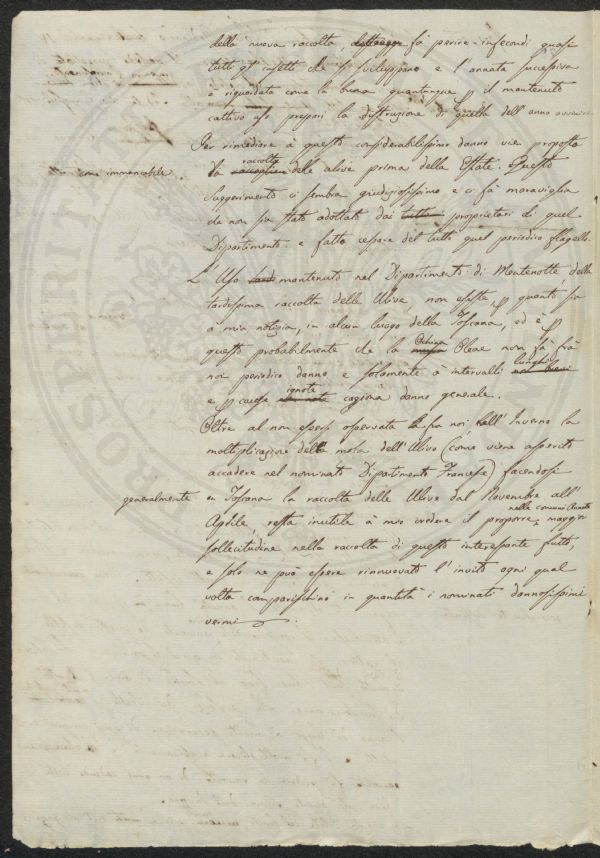 della nuova raccolta, fà perire infecondi quasi
tutti gl' insetti che si sviluppano e l'annata successiva
è riguardata come la buona quantunque p il mantenuto
cattivo uso prepari la distruzione di quella dell' anno avvenire
Per rimediare à questo considerabilissimo danno vien proposta
come immancabile
la raccolta delle ulive prima della Estate. Questo
suggerimento ci sembra giudiziosissimo e ci fà maraviglia
che non sia stato adottato dai proprietari di quel
Dipartimento e fatto cessare del tutto quel periodico flagello.
L'Uso mantenuto nel Dipartimento di Montenotte, della
tardissima raccolta delle Ulive, non esiste p quanto sia
à mia notizia, in alcun luogo della Toscana, ed è p
questo probabilmente che la mosca Oleae non fà frà
noi periodico danno e solamente à intervalli lunghi
e p cause ignote cagiona danno generale.
Oltre al non essersi osservata fra noi, nell' Inverno la
moltiplicazione della mosca dell' Ulivo (come viene asserito
accadere nel nominato Dipartimento Francese) facendosi
generalmente in Toscana la raccolta delle Ulive dal Novembre all'
Aprile, resta inutile à mio credere il proporre nelle comuni Annate maggior
sollecitudine nella raccolta di questo interessante frutto,
e solo ne può essere rinnuovato l'invito ogni qual
volta comparischino in quantità i nominati dannosissimi
vermi.
ROSPERITÀ